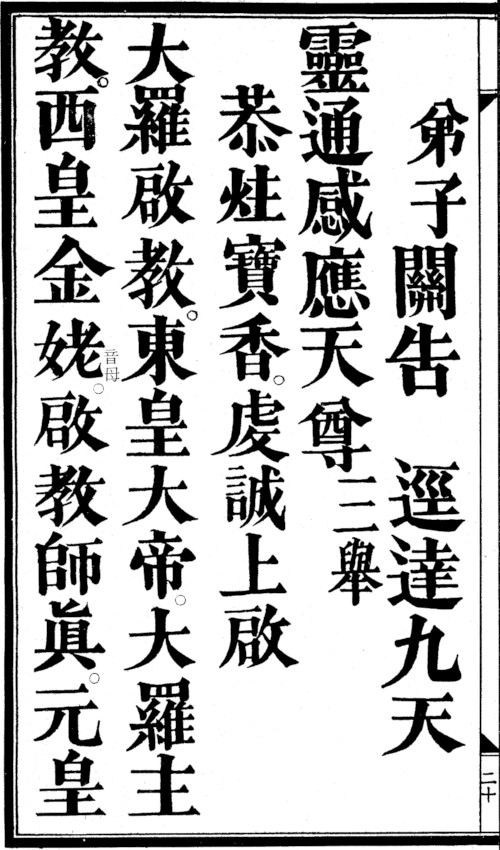 弟子關告　逕達九天
靈通感應天尊三舉
恭炷寶香。虔誠上啟
大羅啟教。東皇大帝。大羅主
教。西皇金姥音母。啟教師眞。元皇
二十